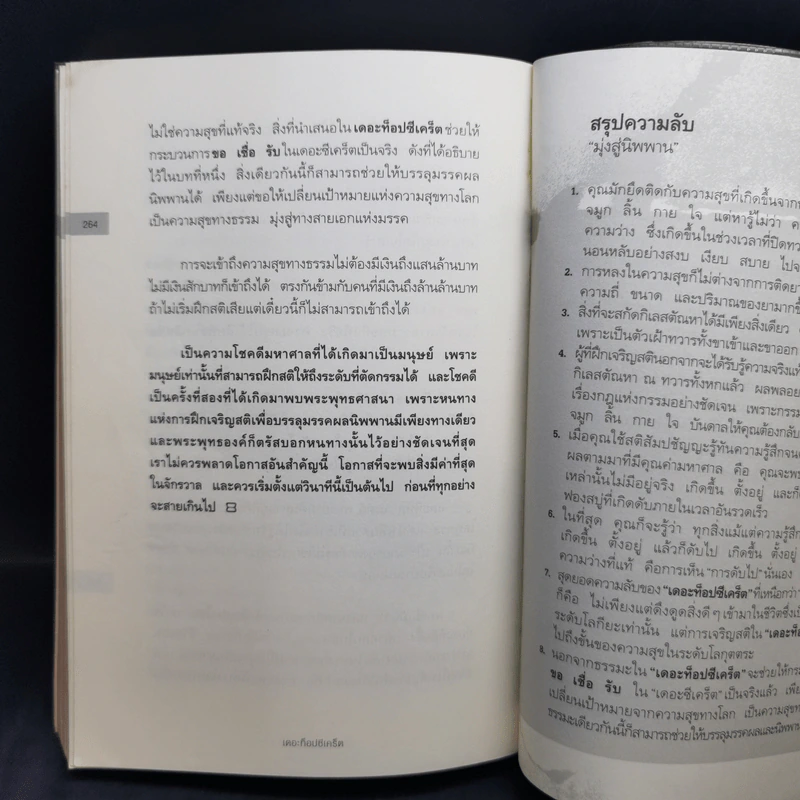 ไม่ใช่ความสุขที่แท้จริง สิ่งที่นำเสนอใน เดอะท็อปซีเคร็ต ช่วยให้
กระบวนการ ขอ เชื่อ รับ ในเดอะซีเคร็ตเป็นจริง ดังที่ได้อธิบาย
ไว้ในบทที่หนึ่ง สิ่งเดียวกันนี้ก็สามารถช่วยให้บรรลุมรรคผล
นิพพานได้ เพียงแต่ขอให้เปลี่ยนเป้าหมายแห่งความสุขทางโลก
เป็นความสุขทางธรรม มุ่งสู่ทางสายเอกแห่งมรรค
264
การจะเข้าถึงความสุขทางธรรมไม่ต้องมีเงินถึงแสนล้านบาท
ไม่มีเงินสักบาทก็เข้าถึงได้ ตรงกันข้ามกับคนที่มีเงินถึงล้านล้านบาท
ถ้าไม่เริ่มฝึกสติเสียแต่เดี๋ยวนี้ก็ไม่สามารถเข้าถึงได้
เป็นความโชคดีมหาศาลที่ได้เกิดมาเป็นมนุษย์ เพราะ
มนุษย์เท่านั้นที่สามารถฝึกสติให้ถึงระดับที่ตัดกรรมได้ และโชคดี
เป็นครั้งที่สองที่ได้เกิดมาพบพระพุทธศาสนา เพราะหนทาง
แห่งการฝึกเจริญสติเพื่อบรรลุมรรคผลนิพพานมีเพียงทางเดียว
และพระพุทธองค์ก็ตรัสบอกหนทางนั้นไว้อย่างชัดเจนที่สุด
เราไม่ควรพลาดโอกาสอันสำคัญนี้ โอกาสที่จะพบสิ่งมีค่าที่สุด
ในจักรวาล และควรเริ่มตั้งแต่วินาทีนี้เป็นต้นไป ก่อนที่ทุกอย่าง
จะสายเกินไป
เดอะท็อปซีเคร็ต
สรุปความลับ
“มุ่งสู่นิพพาน”
1. คุณมักยึดติดกับความสุขที่เกิดขึ้นจาก
จมูก ลิ้น กาย ใจ แต่หารู้ไม่ว่า
ความว่าง ซึ่งเกิดขึ้นในช่วงเวลาที่ปิดทวาร
นอนหลับอย่างสงบ เงียบ สบาย
2. การหลงในความสุขก็ไม่ต่างจากการติดยา
ความถี่ ขนาด และปริมาณของยามากขึ้น
3. สิ่งที่จะสกัดกิเลสตัณหาได้มีเพียงสิ่งเดียว
เพราะเป็นตัวเฝ้าทวารทั้งขาเข้าและขาออก
4. ผู้ที่ฝึกเจริญสตินอกจากจะได้รับรู้ความจริงแท้
กิเลสตัณหา ณ ทวารทั้งหกแล้ว ผลพลอย
เรื่องกฎแห่งกรรมอย่างชัดเจน เพราะกรรม
จมูก ลิ้น กาย ใจ บันดาลให้คุณต้องกลับ
5. เมื่อคุณใช้สติสัมปชัญญะรู้ทันความรู้สึกจน
ผลตามมาที่มีคุณค่ามหาศาล คือ คุณจะพบ
เหล่านั้นไม่มีอยู่จริง เกิดขึ้น ตั้งอยู่ และก็
ฟองสบู่ที่เกิดดับภายในเวลาอันรวดเร็ว
6. ในที่สุด คุณก็จะรู้ว่า ทุกสิ่งแม้แต่ความรู้สึก
เกิดขึ้น ตั้งอยู่ แล้วก็ดับไป เกิดขึ้น ตั้งอยู่
ความว่างที่แท้ คือการเห็น “การดับไป” นั่นเอง
7. สุดยอดความลับของ “เดอะท็อปซีเคร็ต” ที่เหนือกว่า
ก็คือ ไม่เพียงแต่ดึงดูดสิ่งดี ๆ เข้ามาในชีวิตซึ่ง
ระดับโลกียะเท่านั้น แต่การเจริญสติใน “เดอะท็อป
ไปถึงขั้นของความสุขในระดับโลกุตตระ
8. นอกจากธรรมะใน “เดอะท็อปซีเคร็ต” จะช่วยให้
ขอ เชื่อ รับ ใน “เดอะซีเคร็ต” เป็นจริงแล้ว
เปลี่ยนเป้าหมายจากความสุขทางโลก เป็นความสุขทาง
ธรรมะเดียวกันนี้ก็สามารถช่วยให้บรรลุมรรคผลและนิพพาน